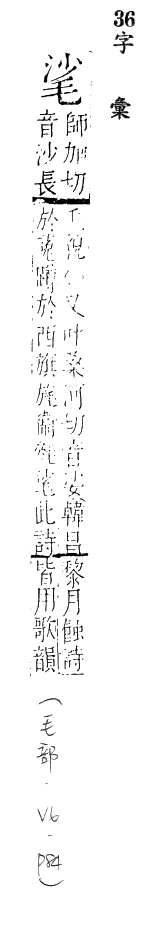 36字彙
㲚
師加切 又叶桑河切音娑韓昌黎月蝕詩
音沙長於菟蹲於西旗旄衛毿㲚此詩皆用歌韻
(毛部-V6-P84)